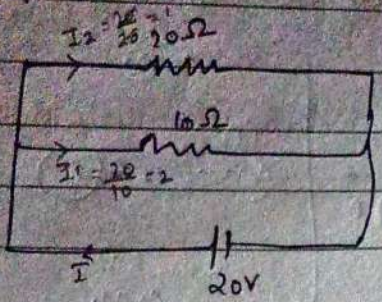 I2 = 20/20 = 1
20 Ω
10 Ω
I1 = 20/10 = 2
I
20V